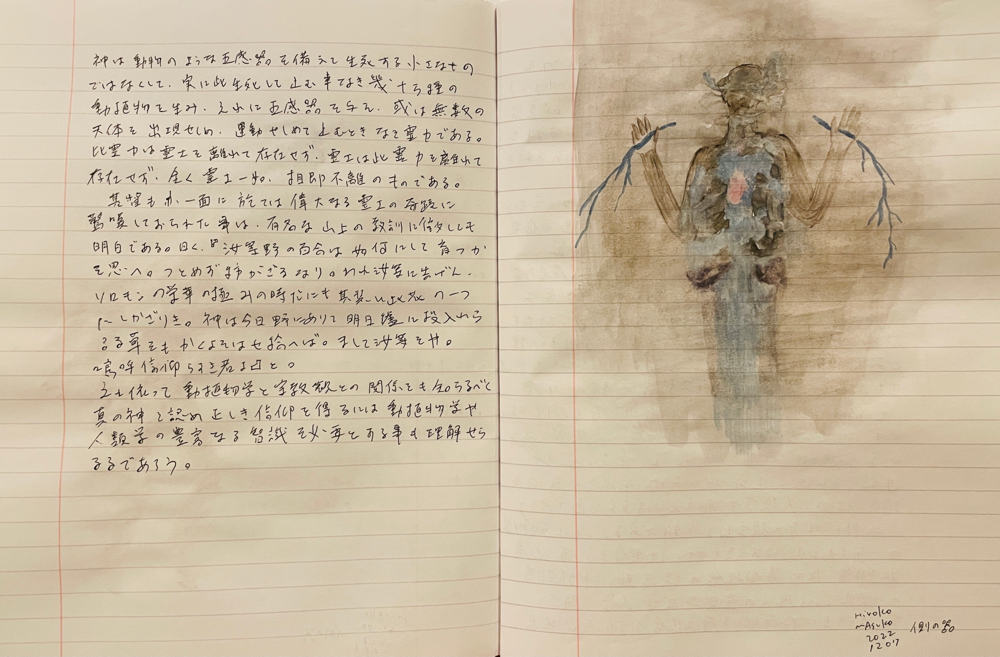 神は動物のような五感器を備えて生死する小さなもの
ではなくして、実に此生死して止む事なき幾十万種の
動植物を生み、それに五感器を与え、或は無数の
天体を出現せしめ、運動せしめて止むときなき霊力である。
此霊力は霊土を離れて存在せず、霊土は此霊力を離れて
存在せず、全く霊土一如、相即不離のものである。
其が一面に於ては偉大なる霊土の
驚嘆しておられた事は、有名な山上の教訓に徴しても
明白である。曰く、『汝等野の百合は如何にして育つか
を思へ。つとめず紡がざるなり。われ汝等に告げん、
ソロモンの栄華の極みの時だにも其装い此花の一つ
にしかざりき。神は今日野にありて明日炉に投入れら
るる草をもかくよそはせ給へば。まして汝等をや。
嗚呼信仰うすき者よ』と。
之に依って動植物学と宗教との関係をも知らるべく
真の神を認め正しき信仰を得るには動植物学や
人類学の豊富なる智識を必要とする事も理解せら
るるであろう。
Hiroko
mAsuko
2022
1207
側の器